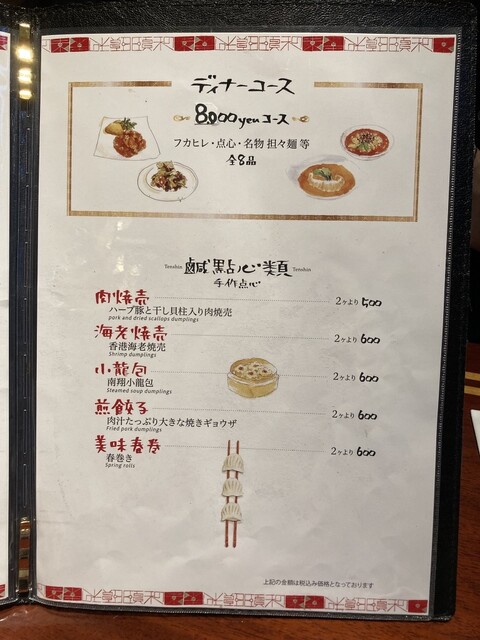 ディナーコース
8,000yenコース
フカヒレ・点心・名物 担々麺 等
全8品
Tenshin 鹹點心類 Tenshin
手作点心
肉焼売 2ヶより 500
ハーブ豚と干し貝柱入り肉焼売
pork and dried scallops dumplings
海老焼売 2ヶより 600
香港海老焼売
Shrimp dumplings
小龍包 2ヶより 600
南翔小龍包
Steamed soup dumplings
煎餃子 2ヶより 600
肉汁たっぷり大きな焼きギョウザ
Fried pork dumplings
美味春卷 2ヶより 600
春巻き
Spring rolls
上記の金額は税込み価格となっております